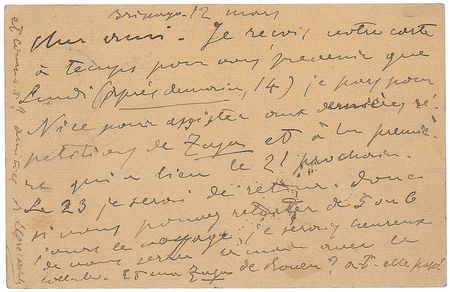 12 mars
Cher ami - Je reçois votre carte
à temps pour vous prévenir que
Lundi (après demain, 14) je pars pour
Nice pour assister aux dernières ré-
pétitions de Zaza et à la premiè-
re qui a lieu le 21 prochain.
Le 23 je serai de retour. Donc
si vous pouvez retarder de 5 ou 6
jours le voyage, je serai heureux
de vous serrer la main avec le
collabo. Et ma Zaza de Rouen? a-t-elle passé
et comment?